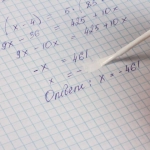 (x - 4) = 5 · (85 +
9x - 36 = 425 + 10x
9x - 10x = 425 + 36
-x = 461
x = -
Ответ: x = -461